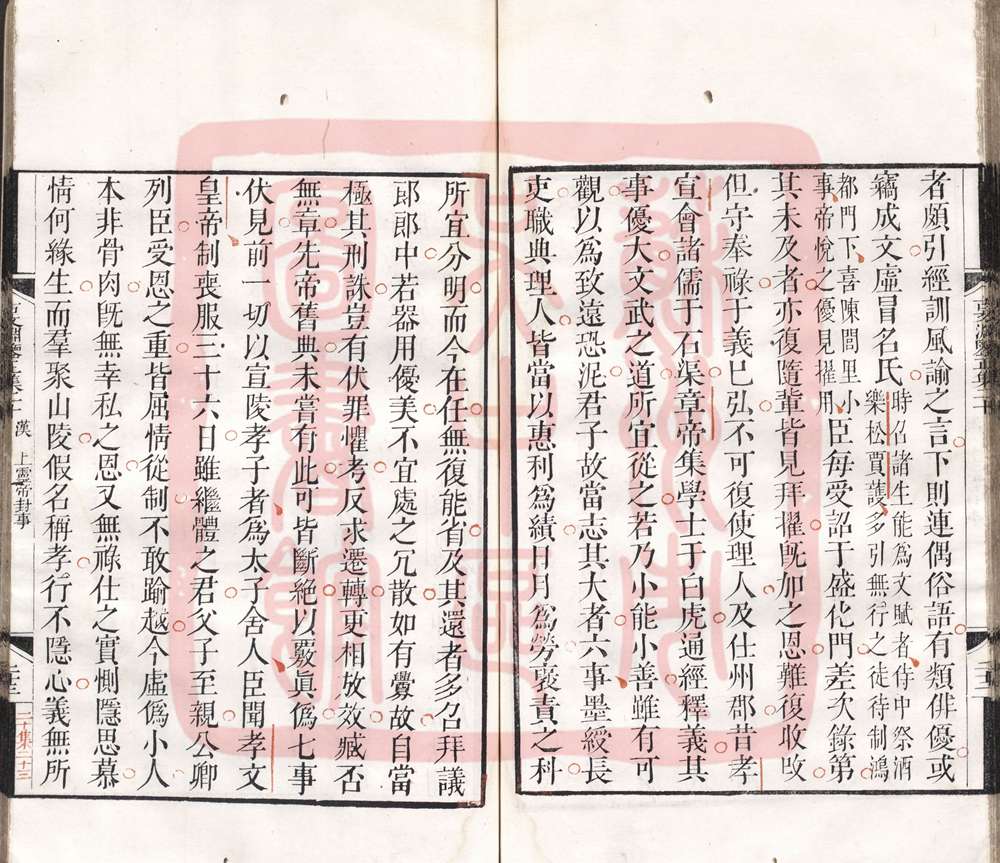 者頗引經訓風諭之言下則連偶俗語有類俳優或
竊成文虛冒名氏
時召諸生能為文賦者侍中祭酒
樂松賈護多引無行之徒待制鴻
都門下喜陳閭里小
事帝悅之優見擢用
臣每受詔于盛化門差次錄第
其未及者亦復隨輩皆見拜擢旣加之恩難復收攺
但守奉祿于義已弘不可復使理人及仕州郡昔孝
宣會諸儒于石渠章帝集學士于白虎通經釋義其
事優大文武之道所宜從之若乃小能小善雖有可
觀以為致遠恐泥君子故當志其大者六事墨綬長
吏職典理人皆當以惠利為績日月為勞襃責之科
所宜分明而今在任無復能省及其還者多召拜議
郎郎中若器用優美不宜處之冗散如有釁故自當
極其刑誅豈有伏罪懼考反求遷轉更相放效臧否
無章先帝舊典未嘗有此可皆斷絕以覈眞偽七事
伏見前一切以宣陵孝子者為太子舍人臣聞孝文
皇帝制喪服三十六日雖繼體之君父子至親公卿
列臣受恩之重皆屈情從制不敢踰越今虛偽小人
本非骨肉旣無幸私之恩又無祿仕之實惻隱思慕
情何緣生而羣聚山陵假名稱孝行不隱心義無所
漢 上靈帝封事
二十三
二集二十三